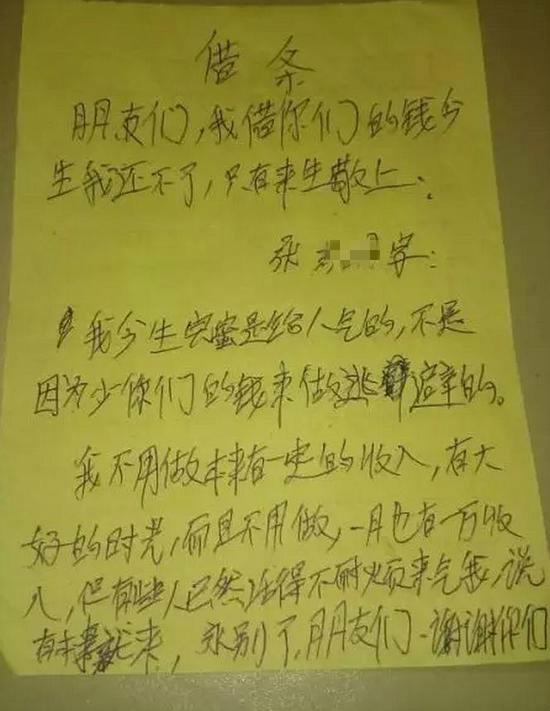 借条
朋友们,我借你们的钱今
生我还不了,只有来生敬上:
张 字:
我今生完蛋是给人气的,不是
因为少你们的钱来做逃避的。
我不用做本来有一定的收入,有大
好的时光,而且不用做,一月也有一万收
入,但有些人已然活得不耐烦来气我,说
有本事就来,永别了,朋友们-谢谢你们